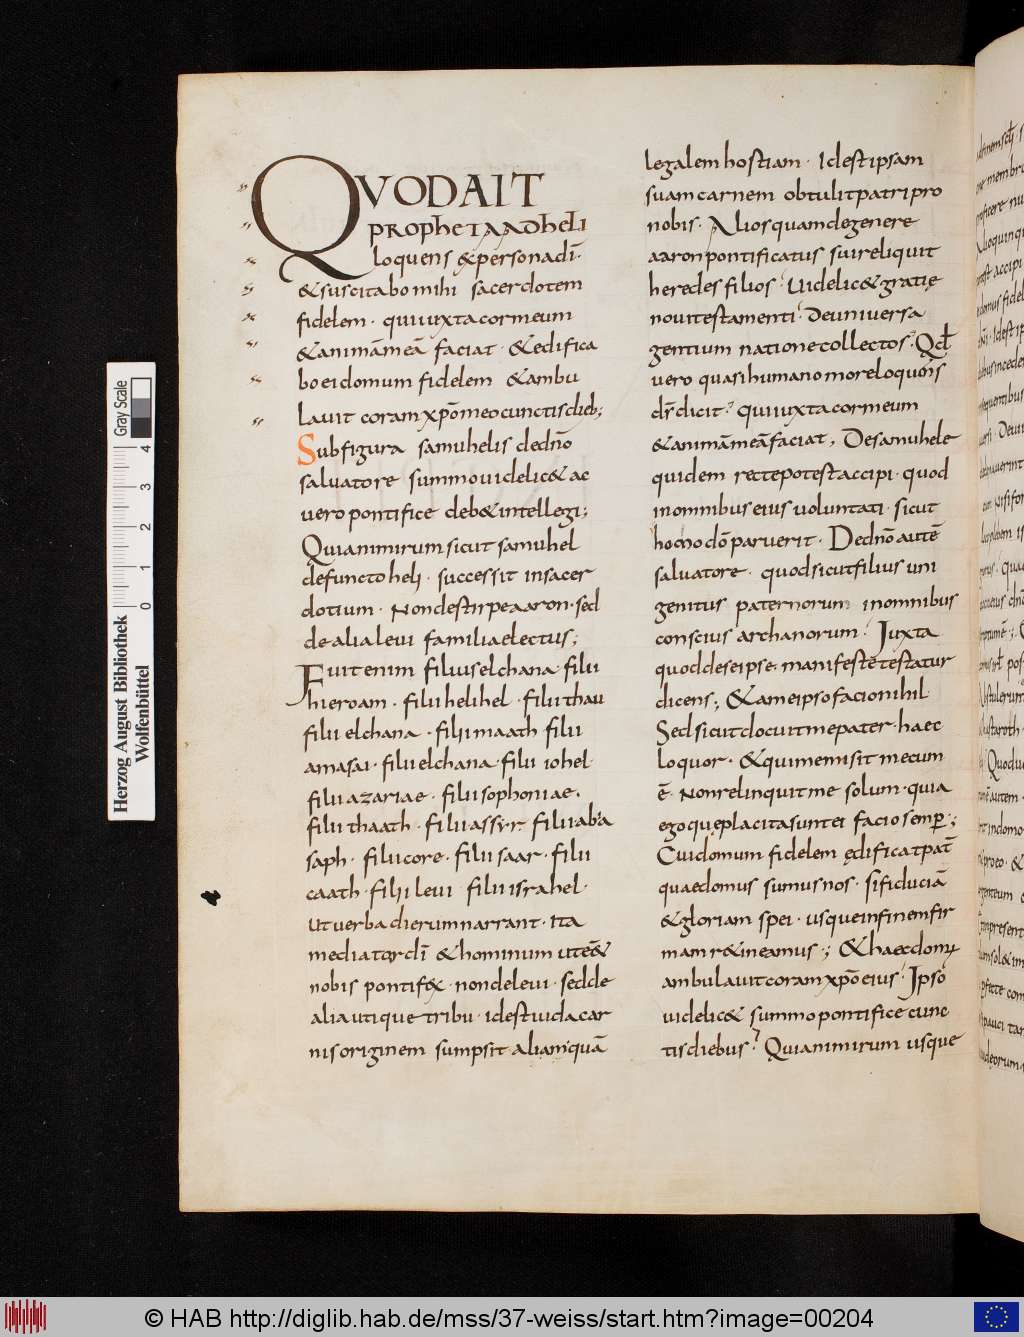 QVODAIT
PROPhETAADhELI
loquens & persona dī·
& suscitabo mihi sacerdotem
fidelem · qui iuxta cor meum
& animā meā faciat · & edifica
bo ei domum fidelem & ambu
lauit coram xp̄o meo cunctis dieb;
Sub figura samuhelis de dn̄o
saluatore summo uidelic& ac
uero pontifice deb& intellegi;
Quia nimirum sicut samuhel
defuncto heli · successit in sacer
dotium · Non de stirpe aaron · sed
de alia leui familia electus;
Fuit enim filius elchana filii
hieroam · filii helihel · filii thau
filii elchana · filii maath filii
amasai · filii elchana · filii iohel·
filii azariae · filii sophoniae ·
filii thaath · filii assyr · filii abia
saph · filii core · filii saar · filii
caath · filii leui filii israhel·
ut uerba dierum narrant · Ita
mediator dī & hominum ut ēē&
nobis pontifex · non de leui · sed de
alia utique tribu · id est iuda car
nis originem sumpsit aliam quā
legalem hostiam · Id est ipsam
suam carnem obtulit patri pro
nobis · Alios quam de genere
aaron pontificatus sui reliquit
heredes filios · Uidelic& gratię
noui testamenti · De uniuersa
gentium natione collectos · Qđ
uero quasi humano more loquens
dr̄ dicit · qui iuxta cor meum
& animā meā faciat, De samuhele
quidem recte potest accipi · quod
in omnibus eius uoluntati · sicut
homo dō paruerit · De dn̄o autē
saluatore · quod sicut filius uni
genitus paternorum in omnibus
conscius archanorum · Iuxta
quod de se ipse manifeste testatur
dicens; & a me ipso facio nihil
Sed sicut docuit me pater · haec
loquor · & qui me misit mecum
ē · Non relinquit me solum · quia
ego quę placita sunt ei facio semp̄·;
Cui domum fidelem ędificat pat̄
quae domus sumus nos · si fiduciā
& gloriam spei · usque in finem fir
mam r&ineamus ·; & haec dom;
ambulauit coram xp̄o eius · Ipso
uidelic& summo pontifice cunc
tis diebus · Quia nimirum usque
Gray Scale
4
3
2
1
0
Herzog August Bibliothek
Wolfenbüttel
© HAB http://diglib.hab.de/mss/37-weiss/start.htm?image=00204